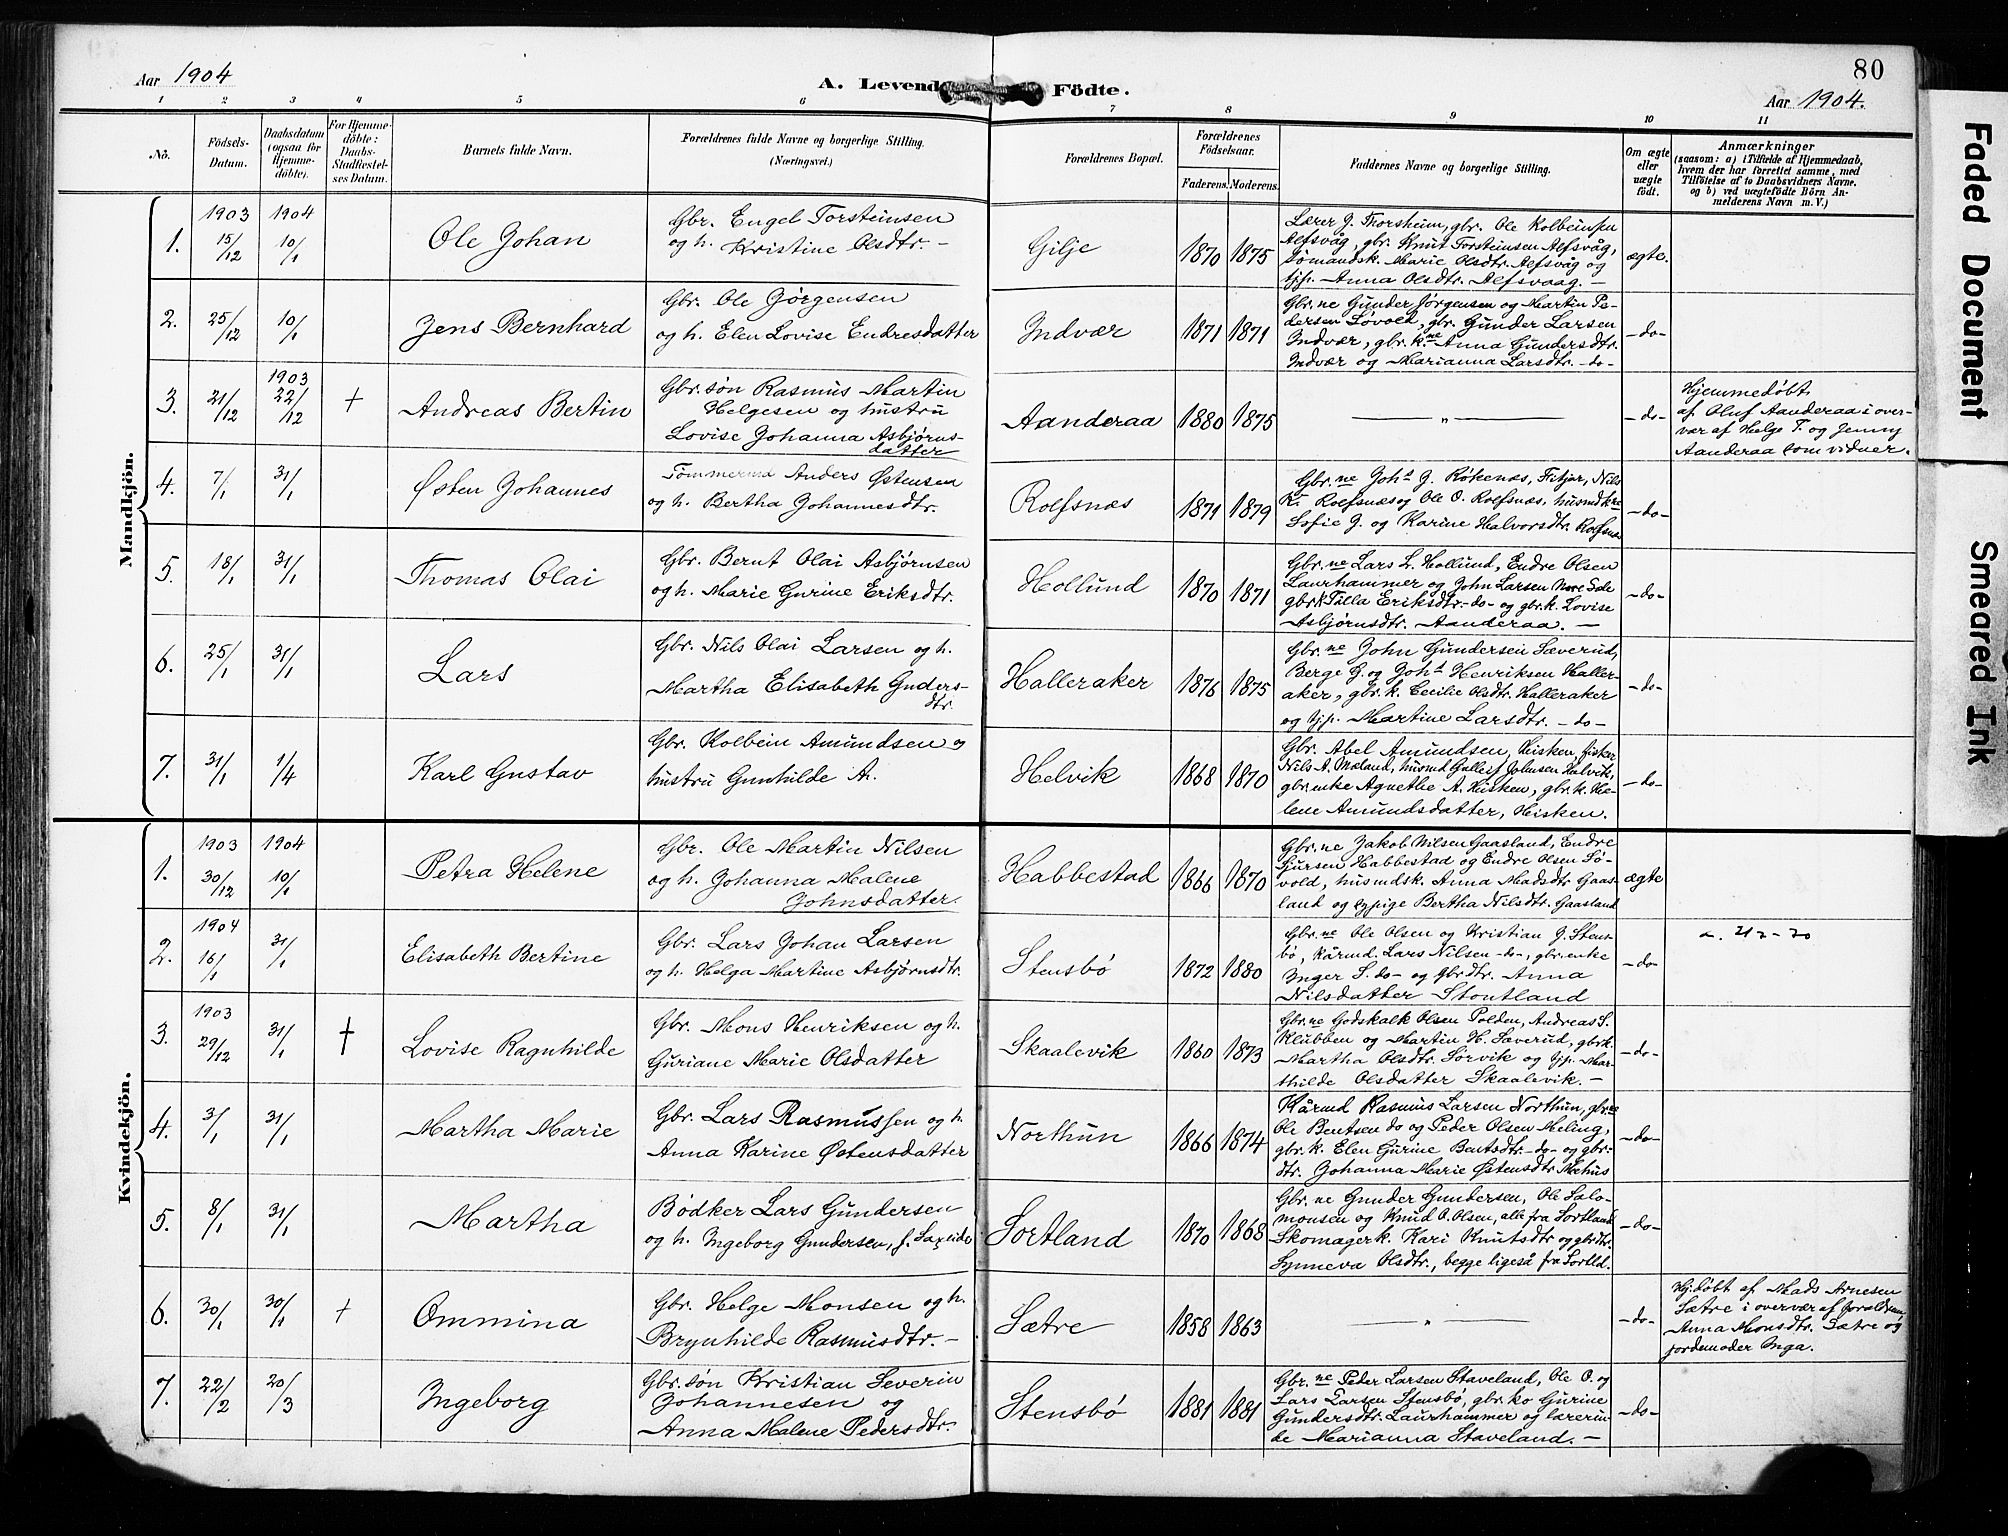 80
Aar 1904
A. Levende Födte.
Aar 1904.
1 2 3 4 5 6 7 8 9 10 11
No.
Födsels-
Datum.
Daabsdatum
(ogsaa for
Hjemme-
döbte).
For Hjemme-
döbte:
Daabs-
Stadfæstel-
ses Datum.
Barnets fulde Navn.
Forældrenes fulde Navne og borgerlige Stilling.
(Næringsvei.)
Forældrenes Bopæl.
Forældrenes
Födselsaar.
Faderens. Moderens.
Faddernes Navne og borgerlige Stilling.
Om ægte
eller
uægte
födt.
Anmærkninger
(saasom: a) i Tilfælde af Hjemmedaab,
hvem der har forrettet samme, med
Tilföielse af to Daabsvidners Navne.
og b) ved uægtefödte Börn An-
melderens Navn m. V.)
Mandkjön.
1.
1903
15/12
1904
10/1
Ole Johan
Gbr. Engel Torsteinsen
og h. Kristine Olsdtr. –
Gilje
1870 1875
Lærer J. Thorsheim, gbr. Ole Kolbeinsen
Alfsvåg, gbr. Knut Torsteinsen Alfsvåg,
sømandsk. Marie Olsdtr. Alfsvåg og
tjp. Anna Olsdtr. Alfsvaag. –
ægte.
2.
25/12
10/1
Jens Bernhard
Gbr. Ole Jörgensen
og h. Elen Lovise Endresdatter
Indvær
1871 1871
Gbr.ne Gunder Jørgensen og Martin Pe-
dersen Løvold, gbr. Gunder Larsen
Indvær, gbr. k.ne Anna Gundersdtr.
Indvær og Marianna Larsdtr. –do–
–do–
3.
21/12
1903
22/12
+
Andreas Bertin
Gbr. søn Rasmus Martin
Helgesen og hustru
Lovise Johanna Asbjørns-
datter
Aanderaa
1880 1875
— „ —
–do–
Hjemmedøbt
af Oluf Aanderaa i over-
vær af Helge T. og Jenny
Aanderaa som vidner.
4.
7/1
31/1
Østen Johannes
Tømmermd Anders Østensen
og h. Bertha Johannesdtr.
Rolfsnæs
1871 1879
Gbr.ne Joht J. Røkenæs, Fitjar, Nils
K. Rolfsnæs og Ole O. Rolfsnæs, husmdk.ne
Sofie J. og Karine Halvorsdtr. Rolfsnæs
–do–
5.
18/1
31/1
Thomas Olai
Gbr. Bernt Olai Asbjørnsen
og h. Marie Gurine Eriksdtr.
Hollund
1870 1871
Gbr.ne Lars L. Hollund, Endre Olsen
Laurhammer og John Larsen Nore Sele
gbr.k Tilla Eriksdtr. –do– og gbr.k. Lovise
Asbjørnsdtr. Aanderaa. –
–do–
6.
25/1
31/1
Lars
Gbr. Nils Olai Larsen og h.
Martha Elisabeth Gunders-
dtr.
Halleraker
1876 1875
Gbr.ne John Gundersen Sæverud,
Berge G. og Joht Henriksen Haller-
aker, gbr. k. Cecilie Olsdtr. Halleraker
og tjp. Martine Larsdtr. –do–
–do–
7.
31/1
1/4
Karl Gustav
Gbr. Kolbein Amundsen og
hustru Gunhilde A.
Helvik
1868 1870
Gbr. Abel Amundsen, Hisken, fisker
Nils A. Mæland, husmd Galleif Johnsen Halvik,
gbr.enke Agnethe A. Hisken, gbr. k. He-
lene Amundsdatter, Hisken.
–do–
Kvindekjön.
1.
1903
30/12
1904
10/1
Petra Helene
Gbr. Ole Martin Nilsen
og h. Johanna Malene
Johnsdatter.
Habbestad
1866 1870
Gbr.ne Jakob Nilsen Gaasland, Endre
Sjursen Habbestad og Endre Olsen Lø-
vold, husmdsk. Anna Madsdtr Gaas-
land og tjpige Bertha Nilsdtr. Gaasland
ægte
2.
1904
16/1
31/1
Elisabeth Bertine
Gbr. Lars Johan Larsen
og h. Helga Martine Asbjørnsdtr.
Stensbö
1872 1880
Gbr.ne Ole Olsen og Kristian J. Stens-
bö, kårmd. Lars Nilsen –do–, gbr.enke
Inger S. do– og Gbrdtr. Anna
Nilsdatter Stoutland
–do–
3.
1903
29/12
31/1
+
Lovise Ragnhilde
Gbr. Mons Henriksen og h.
Guriane Marie Olsdatter
Skaalevik
1860 1873
Gbr.ne Godskalk Olsen Polden, Andreas S.
Klubben og Martin H. Sæverud, gbr.k.
Martha Olsdtr. Sørvik og tjp. Mar-
thilde Olsdatter Skaalevik. –
–do–
4.
3/1
31/1
Martha Marie
Gbr. Lars Rasmussen og h.
Anna Karine Østensdatter
Northun
1866 1874
Kårmd Rasmus Larsen Northun, gbr.ne
Ole Bentsen do og Peder Olsen Meling,
gbr. k. Elen Gurine Bentsdtr. –do– og gbr.
dtr. Johanna Marie Østensdtr. Mehus
–do–
5.
8/1
31/1
Martha
Bödker Lars Gundersen
og h. Ingeborg Gundersen,
Sortland
1870 1868
Gbr. ne Gunder Gundersen, Ole Salo-
monsen og Knud O. Olsen, alle fra Sortland
Skomager k. Kari Knutsdtr og gbrdtr.
Synneva Olsdtr., begge ligeså fra Sortld.
–do–
6.
30/1
30/1
+
Ommina
Gbr. Helge Monsen og h.
Brynhilde Rasmusdtr. –
Sætre
1858 1863
— „ —
–do–
Hj.døbt af Mads Arnesen
Sætre i overvær af forældrene
Anna Monsdtr. Sætre og
jordemoder Inga.
7.
22/2
20/3
Ingeborg
Gbr. søn Kristian Severin
Johannesen og
Anna Malene Pedersdtr.
Stensbö
1881 1881
Gbr.ne Peder Larsen Staveland, Ole O. og
Lars Larsen Stensbö, gbr. ko Gurine
Gundersdtr. Laurhammer og lærerin-
de Marianna Staveland. –
–do–
Faded Document
Smeared Ink